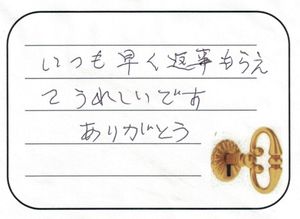 いつも早く返事もらえ
てうれしいです
ありがとう